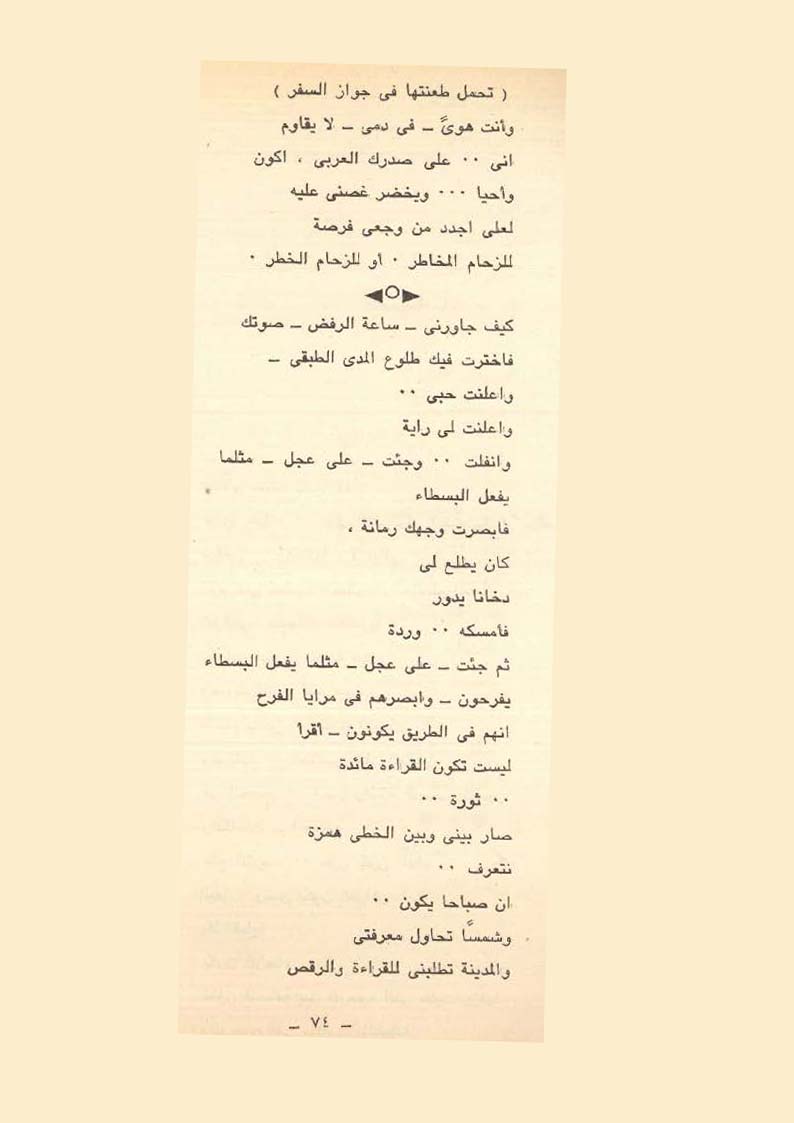 ( تحمل طعنتها فى جواز السفر )
وأنت هوىً ــ فى دمى ــ لا يقاوم
انى ٠٠ على صدرك العربى ، اكون
وأحيا ٠٠٠ ويخضر غصنى عليه
لعلى اجدد من وجعى فرصة
للزحام المخاطر ٠ أو للزحام الخطر ٠
كيف جاورنى ــ ساعة الرفض ــ صوتك
فاخترت فيك طلوع المدى الطبقى ــ
واعلنت حبى ٠٠
واعلنت لى راية
وانفلت ٠٠ وجئت ــ على عجل ــ مثلما
يفعل البسطاء
فابصرت وجهك رمانة ،
كان يطلع لى
دخانا يدور
فأمسكه ٠٠ وردة
ثم جئت ــ على عجل ــ مثلما يفعل البسطاء
يفرحون ــ وابصرهم فى مرايا الفرح
انهم فى الطريق يكونون ــ أقرأ
ليست تكون القراءة مائدة
٠٠ ثورة ٠٠
صار بينى وبين الخطى همزة
نتعرف ٠٠
ان صباحا يكون ٠٠
وشمسًا تحاول معرفتى
والمدينة تطلبنى للقراءة والرقص
ــ ٧٤ ــ